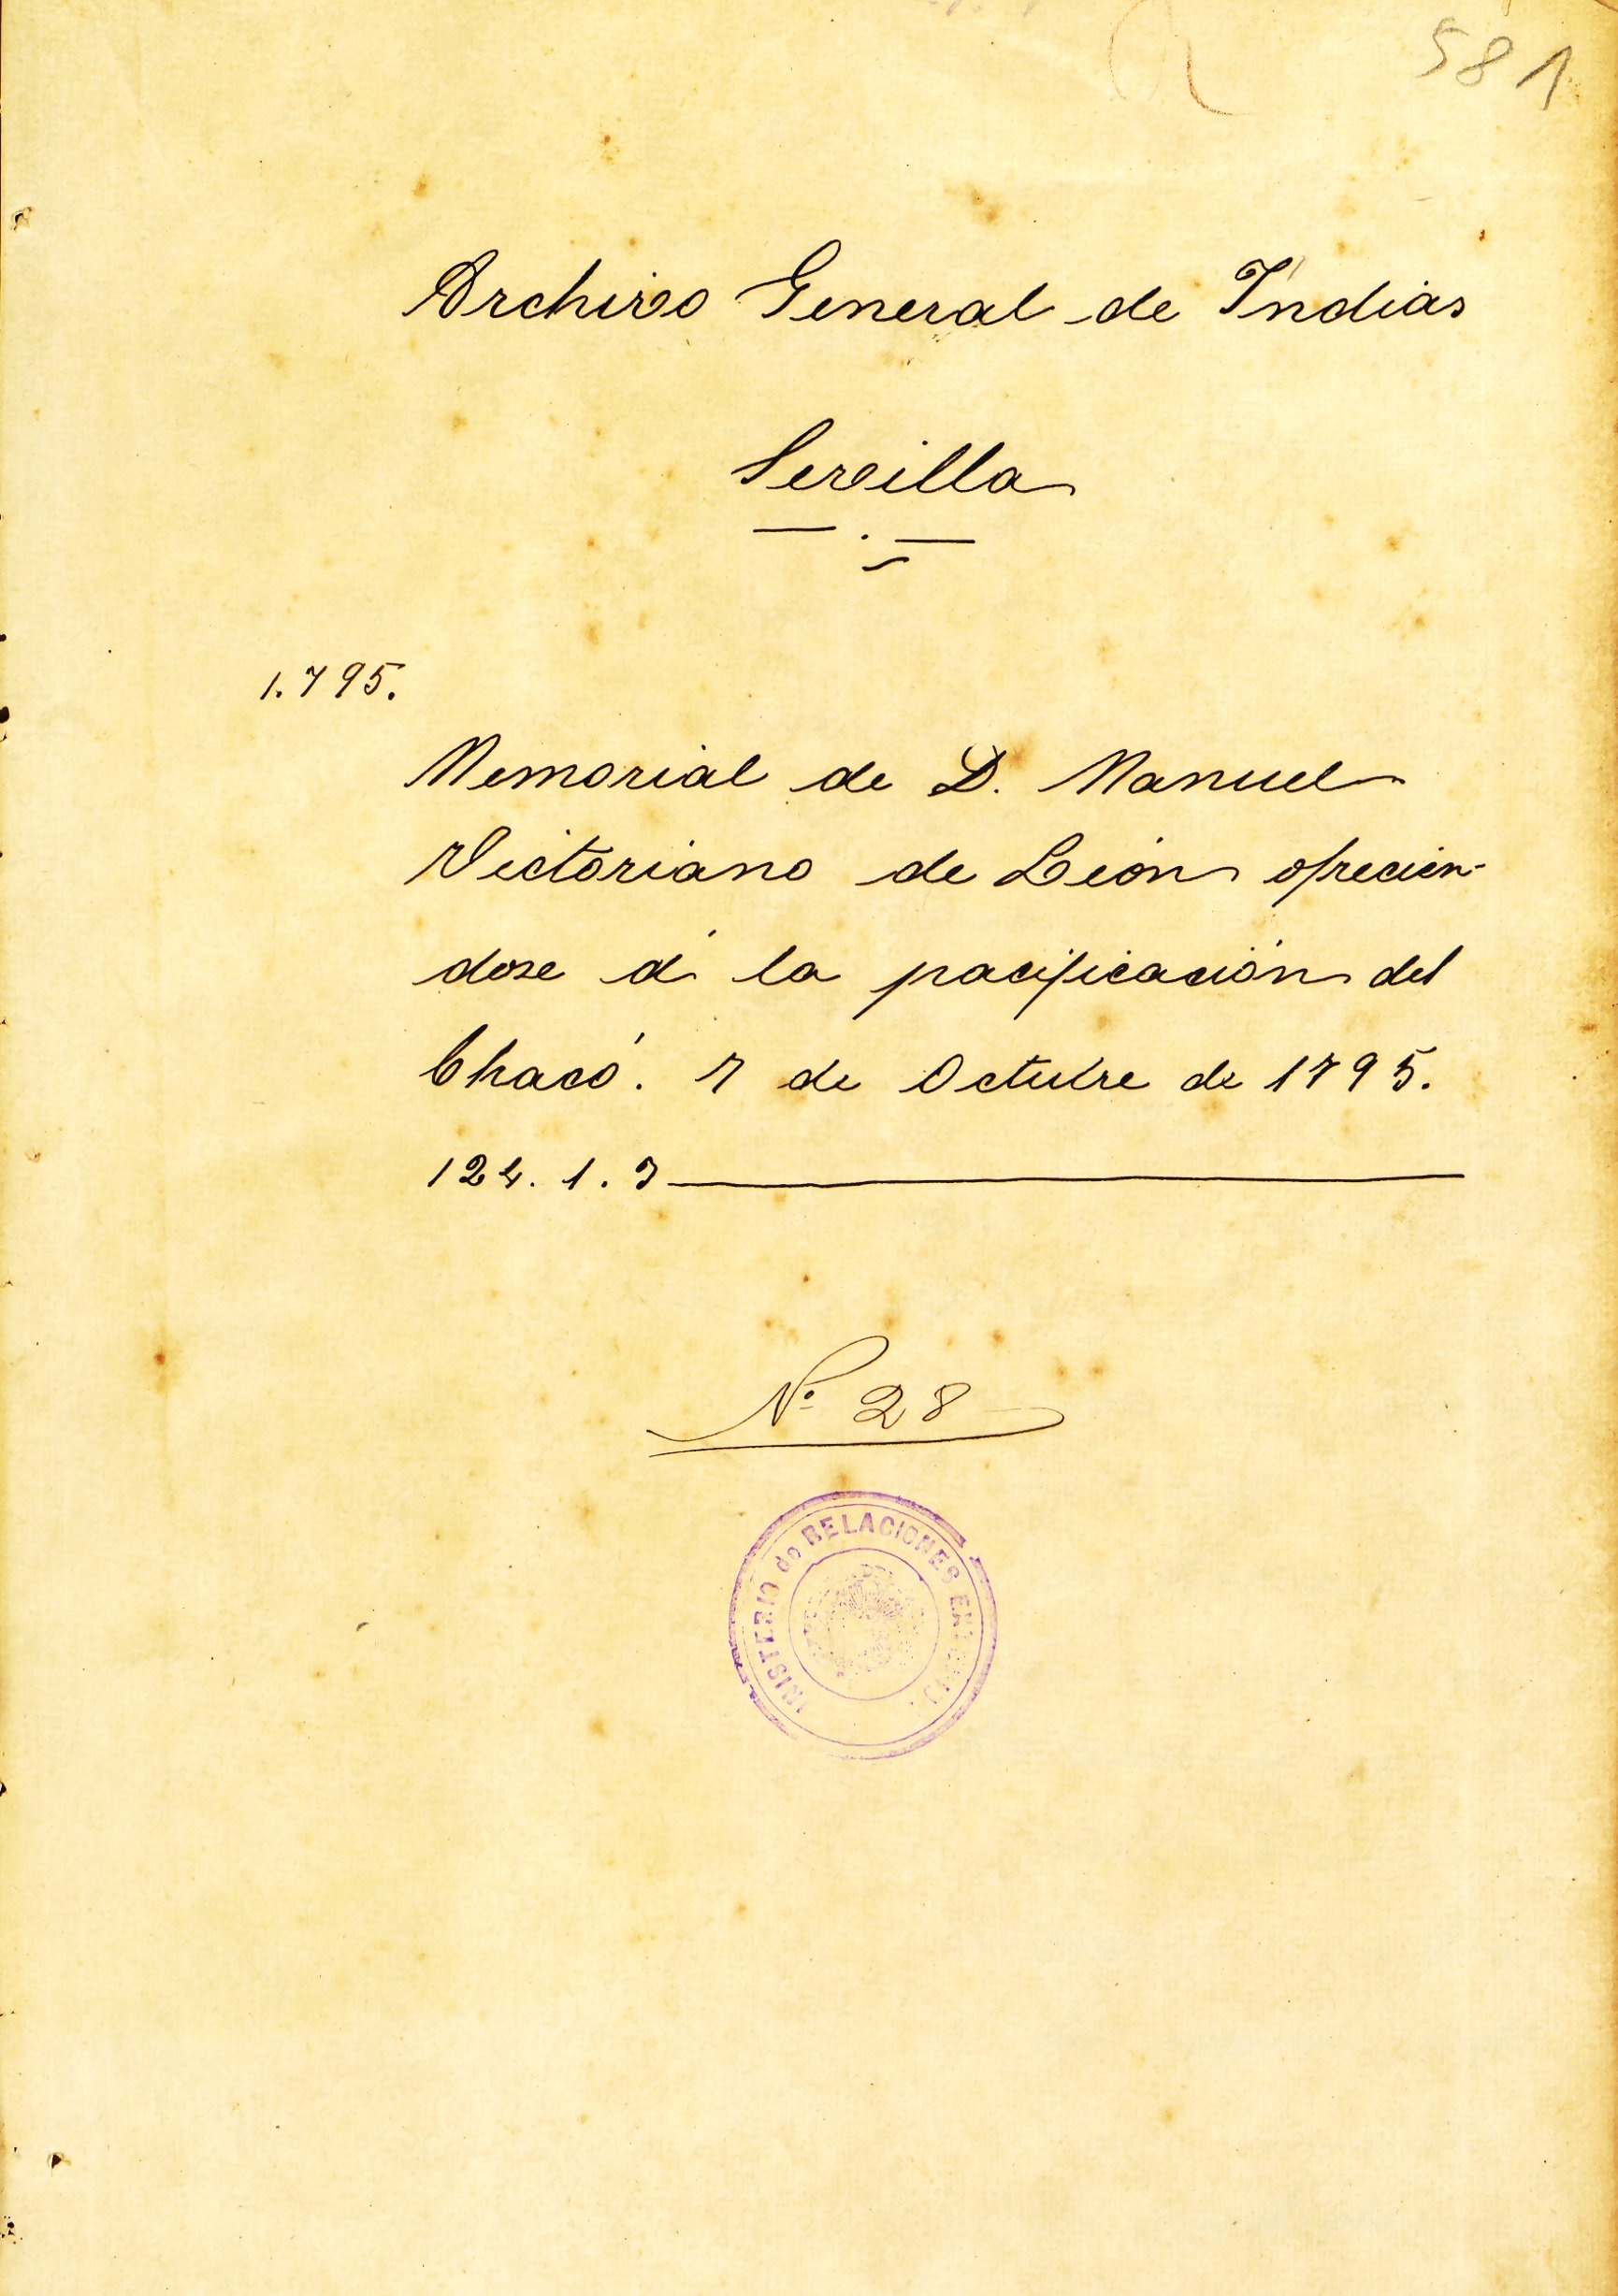 581
Archivo General de Indias
Sevilla
1.795.
Memorial de D. Manuel
Victoriano de León ofrecien-
dose á la pacificación del
Chacó. 7 de Octubre de 1795.
124. 1. 7
Nº 28
MINISTERIO de RELACIONES